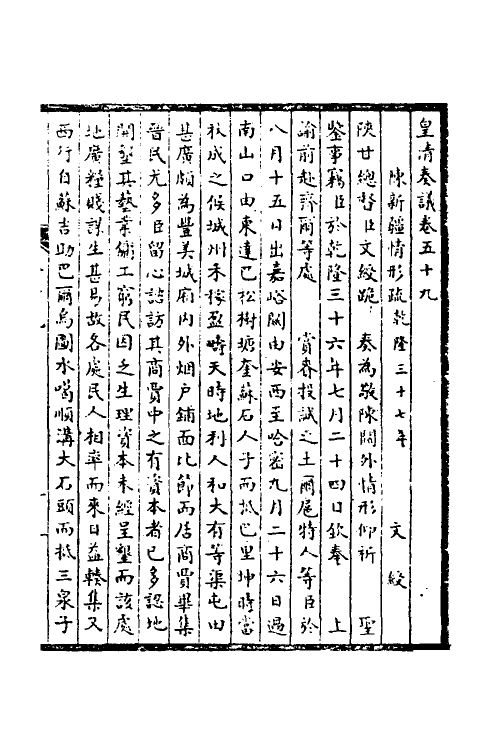 皇清奏議卷五十九
陳新疆情形疏乾隆三十七年 文綬
陝甘總督臣文綬跪 奏為敬陳關外情形仰祈 聖
鑒事竊臣於乾隆三十六年七月二十四日欽奉 上
諭前赴濟爾等處 賞賚投誠之土爾扈特人等臣於
八月十五日出嘉峪關由安西至哈密九月二十六日過
南山口由東達巴松樹塘奎蘇石人子而抵巴里坤時當
秋成之候城州禾稼盈疇天時地利人和大有等渠屯田
甚廣頗為豐美城廂内外烟户鋪面比節而居商賈畢集
晉民尤多臣留心諮訪其商賈中之有資本者已多認地
開墾其藝業傭工窮民因乏生理資本未經呈墾而該處
地廣糧賤謀生甚易故各處民人相率而來日益輳集又
西行自蘇吉助巴爾烏圖水噶順溝大石頭而抵三泉子